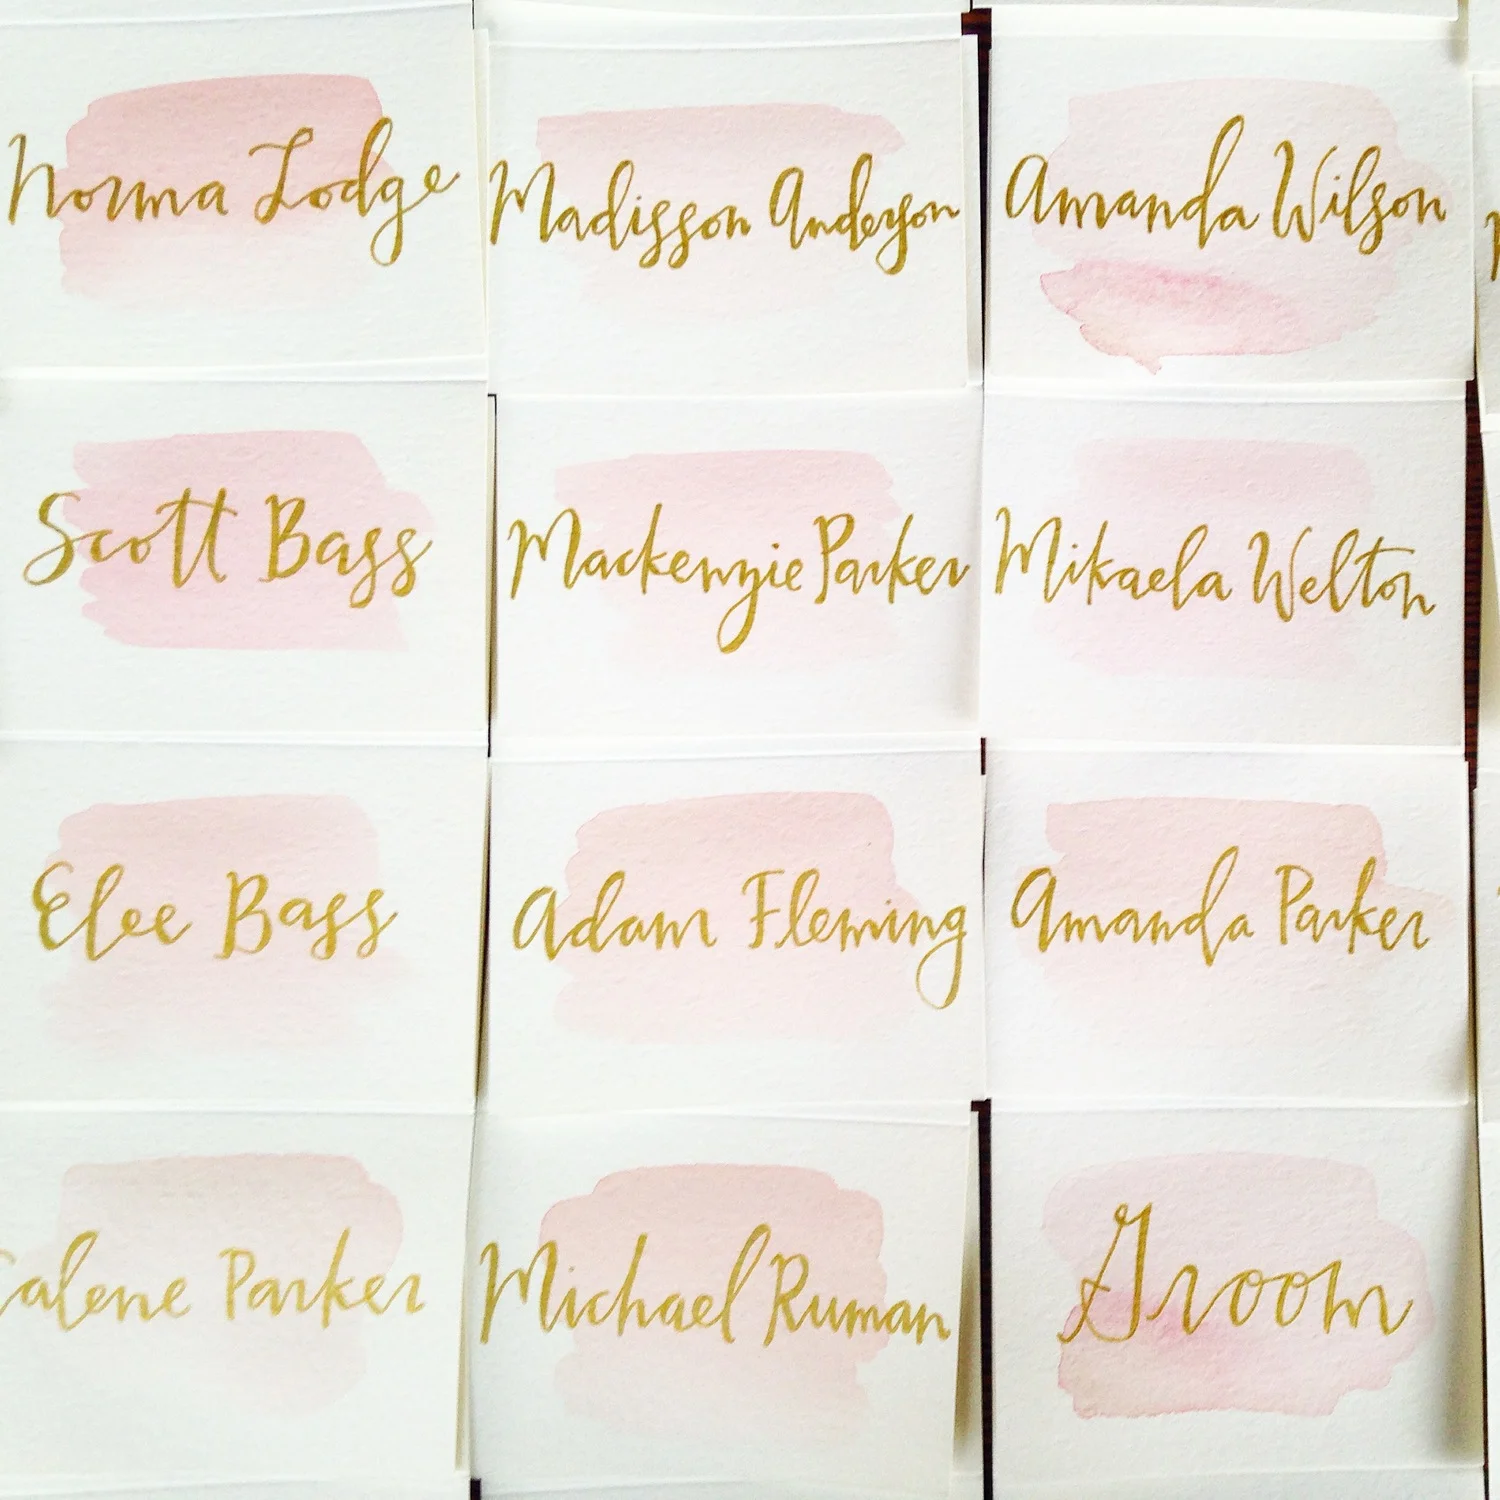 Norma Lodge
Madisson Anderson
Amanda Wilson
Scott Bass
Mackenzie Parker
Mikaela Welton
Elee Bass
Adam Fleming
Amanda Parker
alene Parker
Michael Ruman
Groom